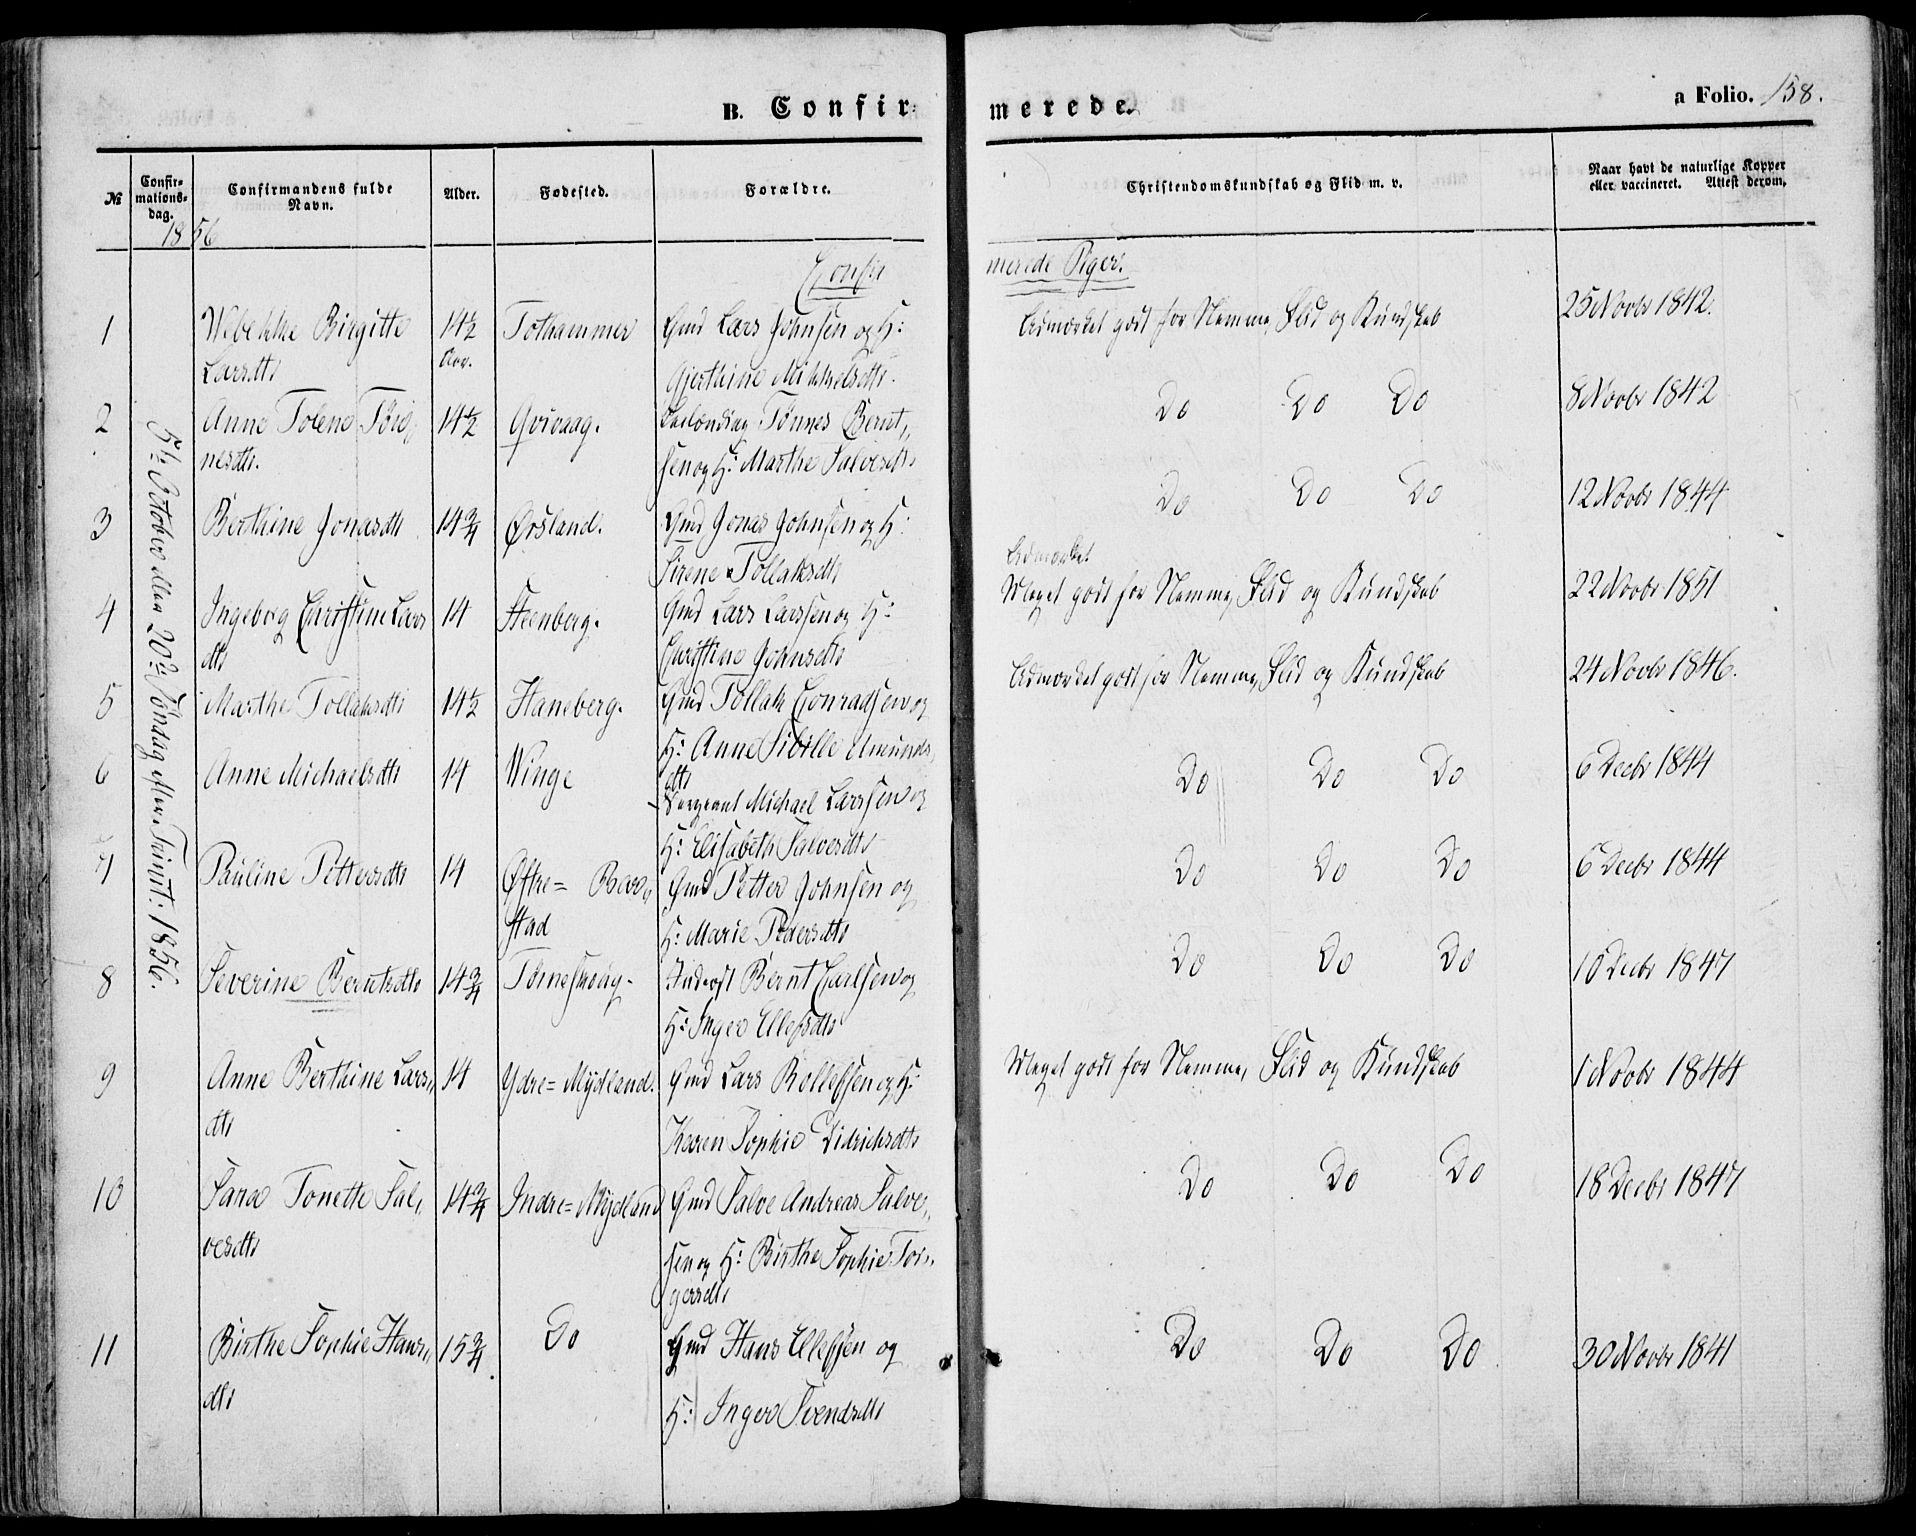 B. Confirmerede.
a Folio. 158.
№
Confirmationsdag.
Confirmandens fulde Navn.
Alder.
Fødested.
Forældre.
Christendomskundskab og Flid m. v.
Naar havt de naturlige Kopper eller vaccineret. Attest derom.
1856
Confirmerede Piger.
5te October 20de Søndag efter Trinit: 1856.
1 Wibekke Birgitte 14½ Tothammer Gmd Lars Johnsen og H: Udmærket godt for Nemme, Flid og Kundskab 25 Novbr 1842.
Larsdtr Aar. Gjerthine Mikkelsdtr.
2 Anne Tolene Tøn 14½ Qvivaag. Tønnes Bernt,, Do Do Do 8 Novbr 1842
nesdtr. sen og H: Marthe Salvesdtr
3 Berthine Jonasdtr 14¾ Ørsland. Gmd Jonas Johnsen og H: Do Do Do 12 Novbr 1844
Sirene Tollaksdtr
Udmærket
4 Ingeborg Christine Lars 14 Steenberg. Gmd Lars Larssen og H: Meget godt for Nemme, Flid og Kundskab 22 Novbr 1851
dtr Christine Johnsdtr
5 Marthe Tollaksdtr 14½ Haneberg. Gmd Tollak Conradsen og Udmærket godt for Nemme, Flid og Kundskab 24 Novbr 1846.
H: Anne Sibille Amunds
dtr
6 Anne Michaelsdtr 14 Winge Sergeant Michael Larssen og Do Do Do 6 Decbr 1844
H: Elisabeth Salvesdtr
7 Pauline Pettersdtr 14 Østre= Gmd Petter Johnsen og Do Do Do 6 Decbr 1844
stad H: Marie Pedersdtr
8 Severine Berntsdtr 14¾ Bernt Carlsen og Do Do Do 10 Decbr 1847
H: Inger Ellefsdtr
9 Anne Berthine Lars,, 14 Ydre=Mydland. Gmd Lars Rollefsen og H: Meget godt for Nemme, Flid og Kundskab 1 Novbr 1844
dtr Karen Sophie Didrichsdtr
10 Sara Tonette Sal,, 14¾ Indre=Mydland Gmd Salve Andreas Salve,, Do Do Do 18 Decbr 1847
vesdtr sen og H: Birthe Sophie Tor,,
gersdtr
11 Birthe Sophie Hans,, 15¾ Do Gmd Hans Ellefsen og Do Do Do 30 Novbr 1841
dtr H: Inger Svendsdtr